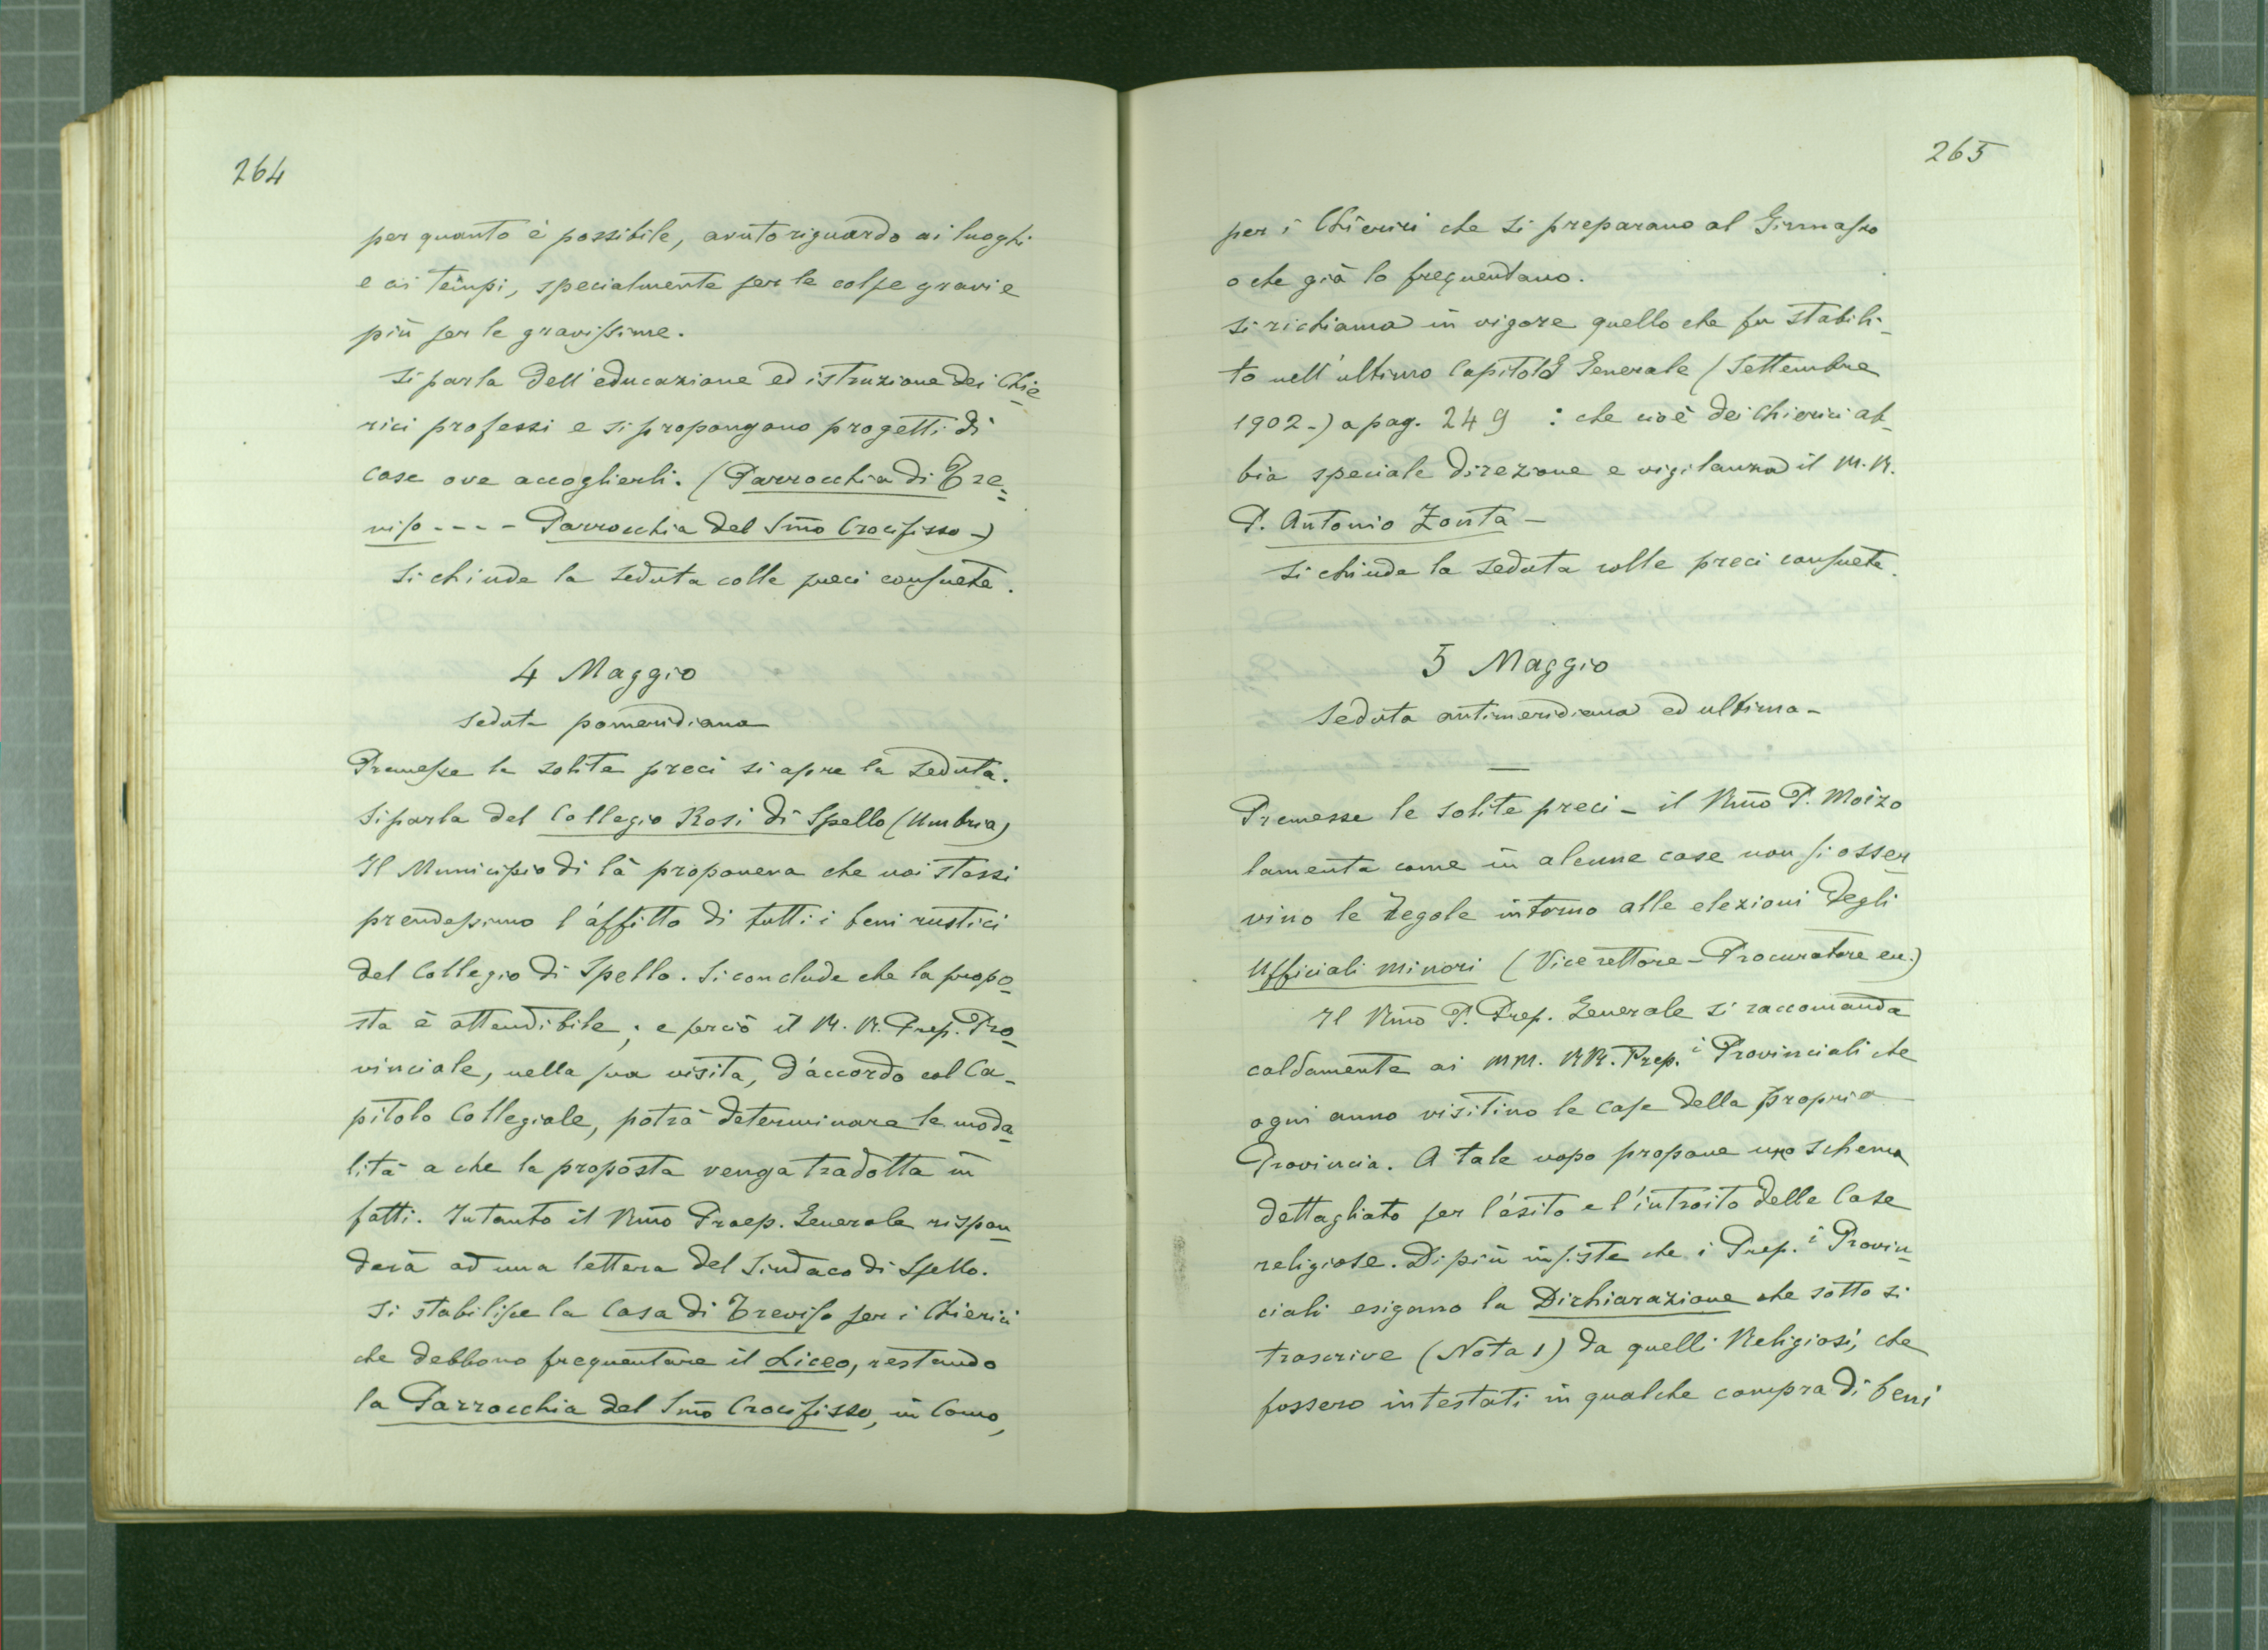 264
per quanto è possibile, avuto riguardo ai luoghi
e ai tempi, specialmente per le colpe gravi e
più per le gravissime.
Si parla dell'educazione ed istruzione dei Chie
rici professi e si propongono progetti di
case ove accoglierli. (Parrocchia di Tre=
viso - - - - Parrocchia del Smo Crocifisso -)
Si chiude la seduta colle preci consuete.
4 Maggio
seduta pomeridiana
Premesse le solite preci si apre la seduta.
Si parla del Collegio Rosi di Spello (Umbria)
Il Municipio di là proponeva che noi stessi
prendessimo l'affitto di tutti i beni rustici
del Collegio di Spello. Si conclude che la propo-
sta è attendibile; e perciò il M. R. Prep. Pro-
vinciale, nella sua visita, d'accordo col Ca-
pitolo Collegiale, potrà determinare le moda-
lità a che la proposta venga tradotta in
fatti. Intanto il Rmo Praep. Generale rispon-
derà ad una lettera del Sindaco di Spello.
Si stabilisce la Casa di Treviso per i Chierici
che debbono frequentare il Liceo, restando
la Parrocchia del Smo Crocifisso, in Como,
265
per i Chierici che si preparano al Ginnasio
o che già lo frequentano.
Si richiama in vigore quello che fu stabili-
to nell'ultimo Capitolo Generale (Settembre
1902-) a pag. 249 : che cioè dei Chierici ab-
bia speciale direzione e vigilanza il M. R.
P. Antonio Zonta -
Si chiude la seduta colle preci consuete.
5 Maggio
Seduta antimeridiana ed ultima -
Premesse le solite preci - il Rmo P. Moizo
lamenta come in alcune case non si osser-
vino le regole intorno alle elezioni degli
Ufficiali minori (Vicerettore - Procuratore ecc.)
Il Rmo P. Prep. Generale si raccomanda
caldamente ai MM. RR. Prep.i Provinciali che
ogni anno visitino le case della propria
Provincia. A tale uopo propone uno schema
dettagliato per l'esito e l'introito delle Case
religiose. Di più insiste che i Prep.i Provin-
ciali esigano la Dichiarazione che sotto si
trascrive (Nota 1) da quelli Religiosi, che
fossero intestati in qualche compra di beni